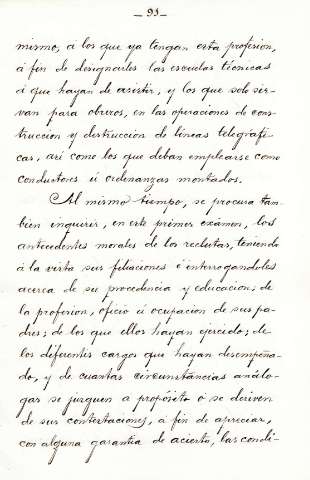 — 93 —
mismo, á los que ya tengan esta profesion,
á fin de designarles las escuelas técnicas
á que hayan de asistir, y los que solo sir-
van para obreros, en las operaciones de cons-
truccion y destruccion de líneas telegráfi-
cas, así como los que deban emplearse como
conductores ú ordenanzas montados.
Al mismo tiempo, se procura tam-
bien inquirir, en este primer exámen, los
antecedentes morales de los reclutas, teniendo
á la vista sus filiaciones é interrogandoles
acerca de su procedencia y educacion; de
la profesion, oficio ú ocupacion de sus pa-
dres; de los que ellos hayan ejercido; de
los diferentes cargos que hayan desempeña-
do, y de cuantas circunstancias análo-
gas se juzguen a propósito ó se deriven
de sus contestaciones, á fin de apreciar,
con alguna garantia de acierto, las condi-